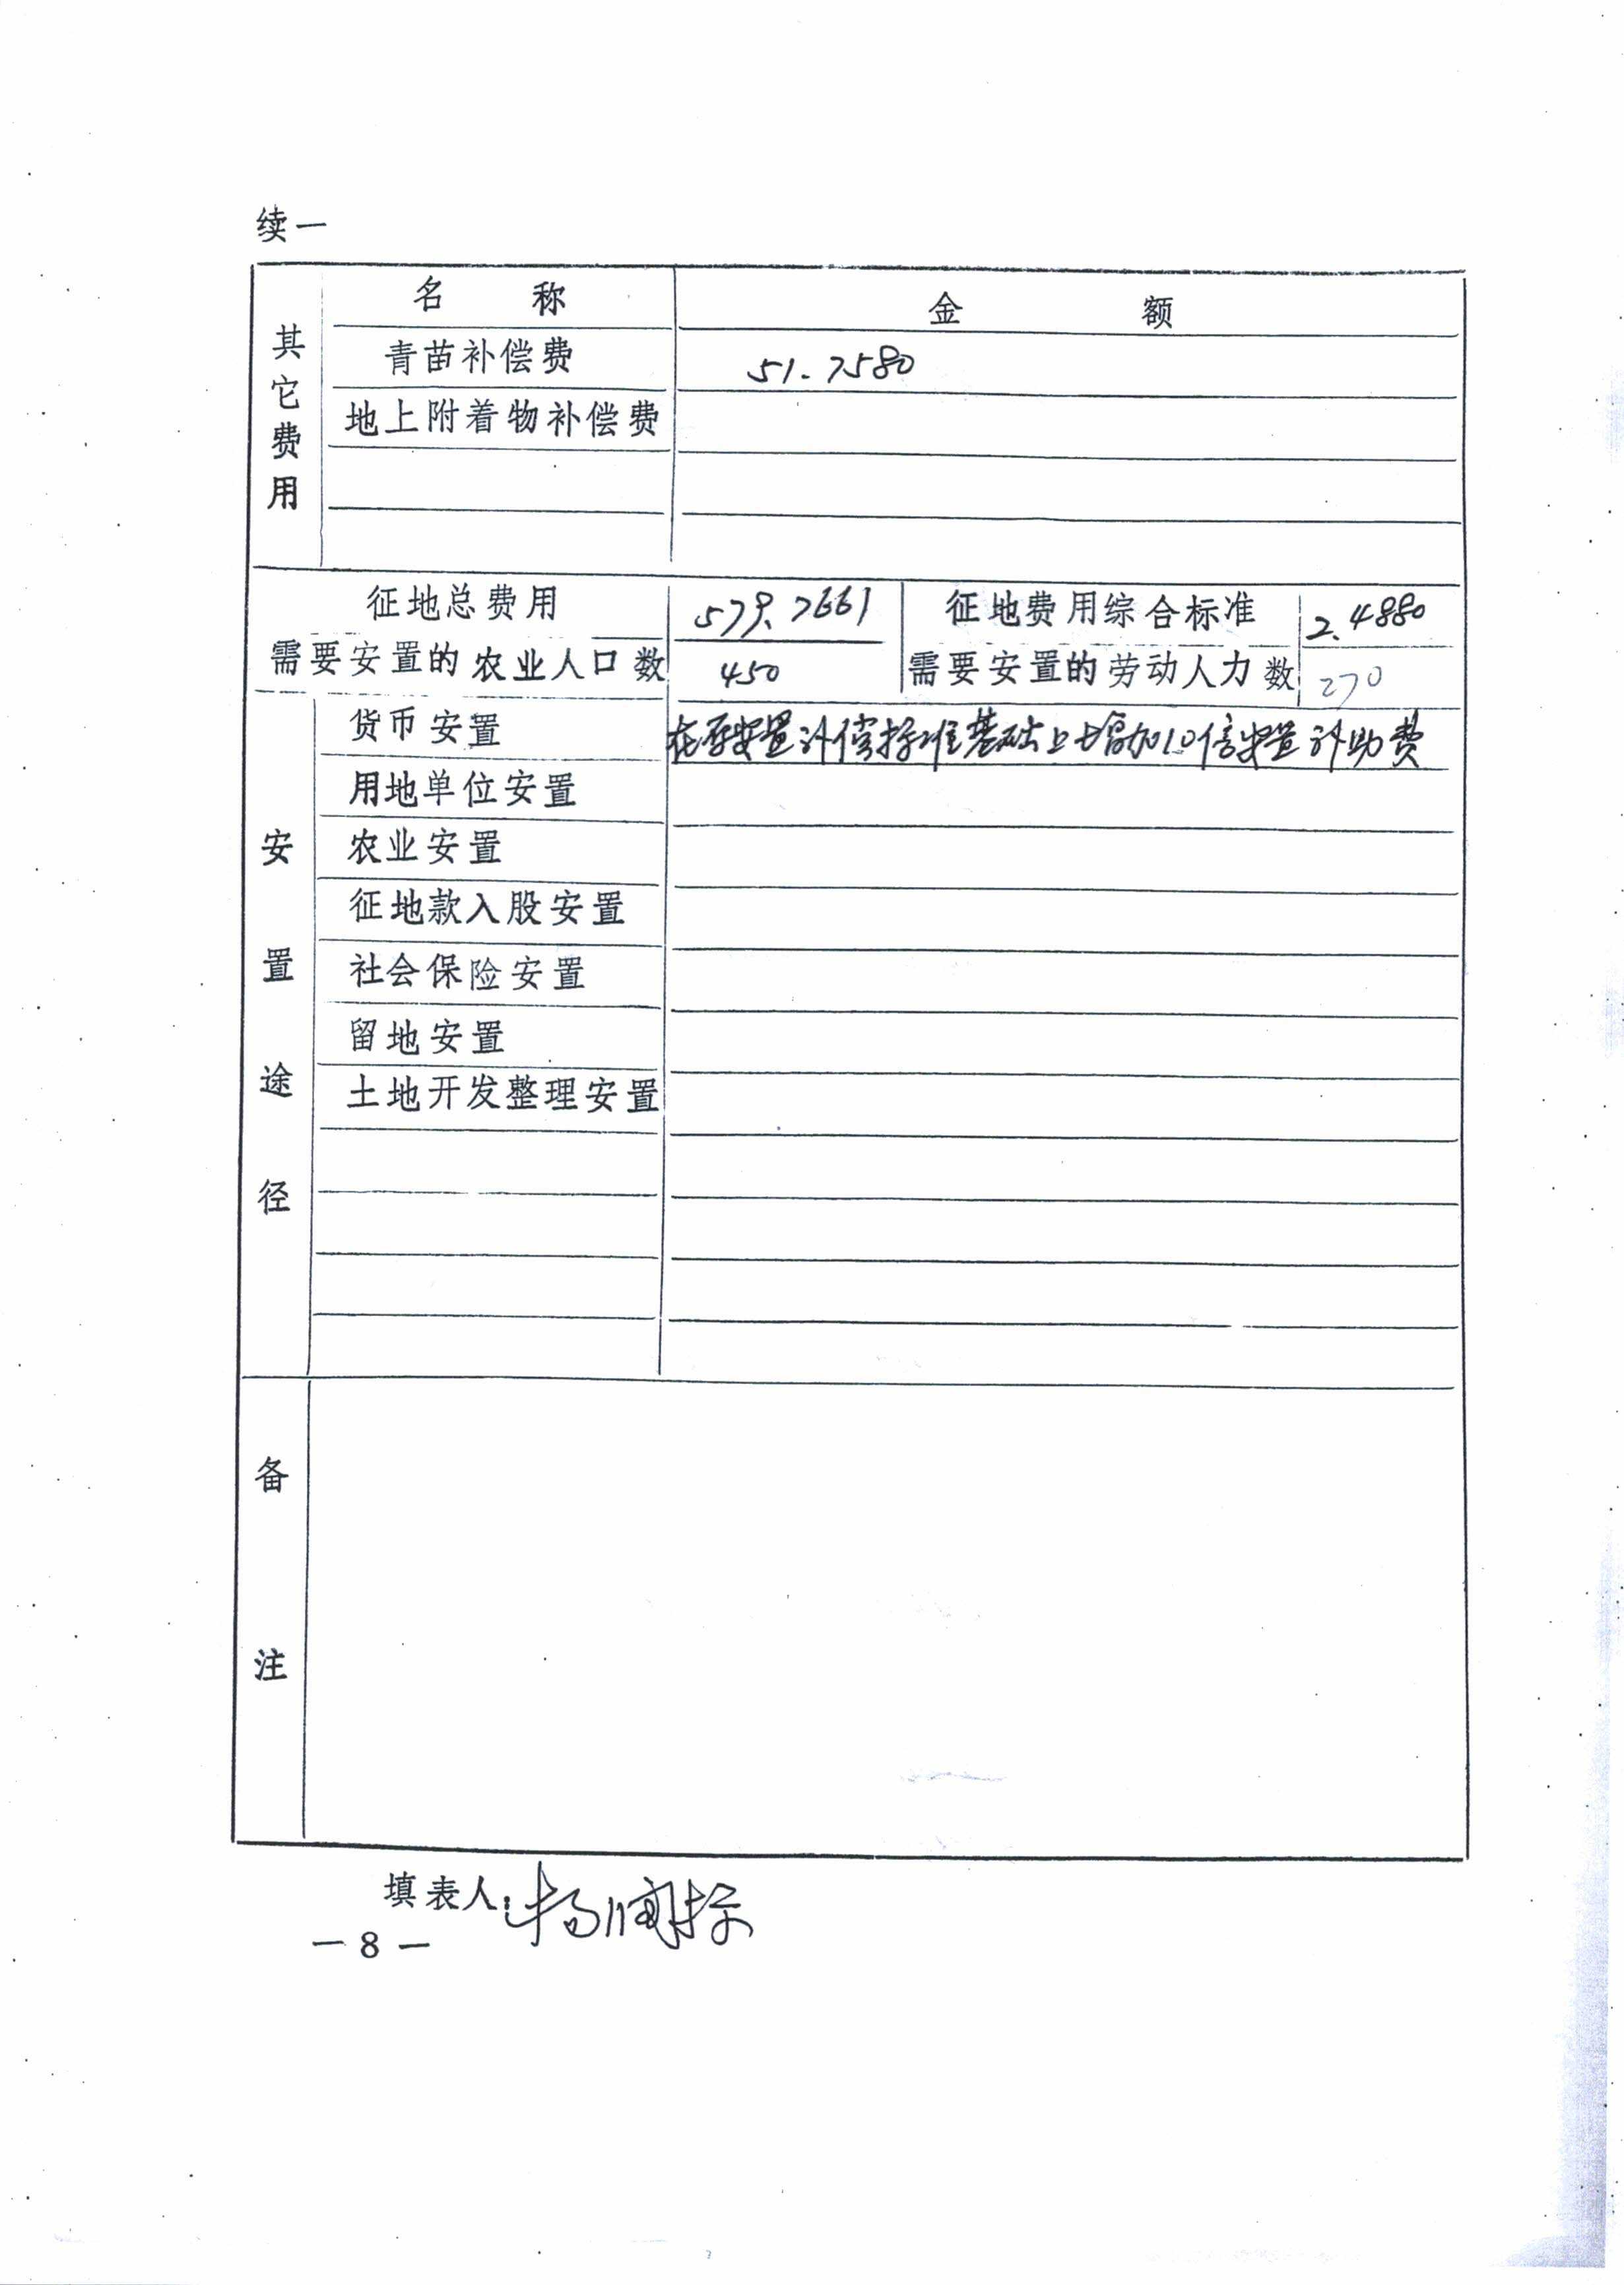 续一
其它费用
名 称
金 额
青苗补偿费 51.7580
地上附着物补偿费
征地总费用 579.7661 征地费用综合标准 2.4880
需要安置的农业人口数 450 需要安置的劳动人力数 270
安置途径
货币安置 在原安置补偿标准基础上增加10倍安置补助费
用地单位安置
农业安置
征地款入股安置
社会保险安置
留地安置
土地开发整理安置
备注
填表人:
— 8 —